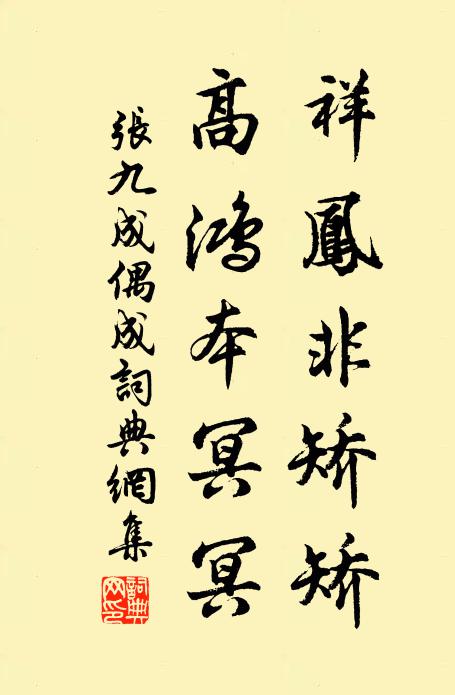 祥鳳非矯矯
高鴻本冥冥
張九成偶成詞典網集
詞典网印